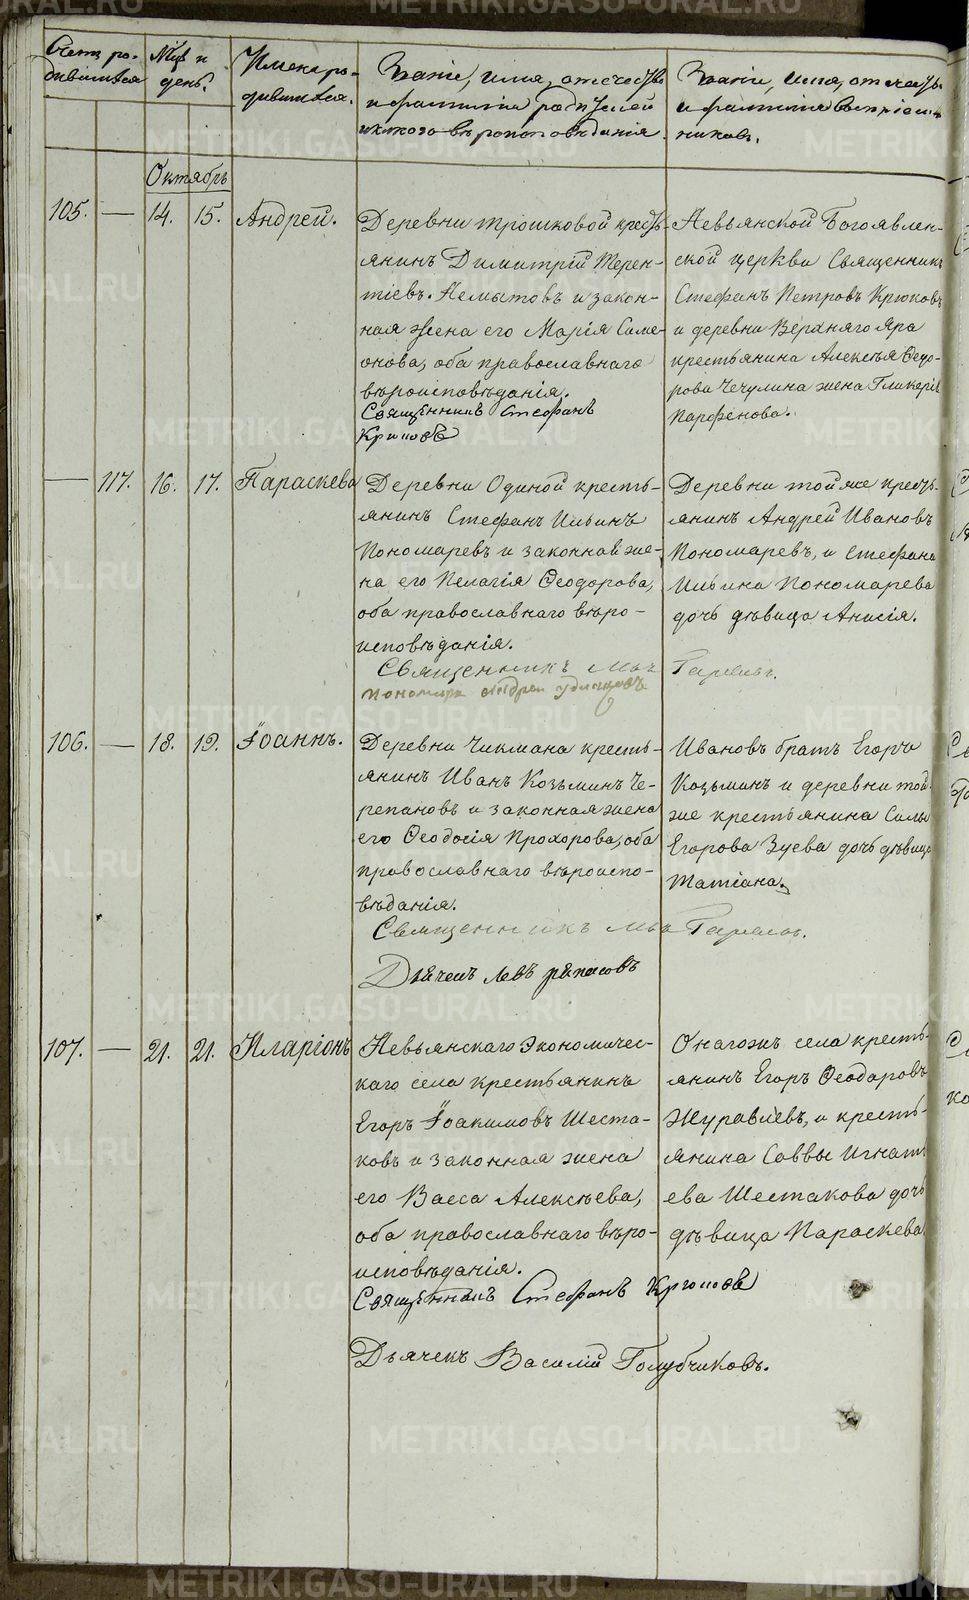 Счетъ ро-
дившихся
Мѣс. и
день.
Имена ро-
дившихся.
Званіе, имя, отчество
и фамилія родителей
и какого вѣроисповѣданія.
Званіе, имя, отчество
и фамилія воспріем-
никовъ.
Октябрь
105. — 14. 15. Андрей.
Деревни Трошковой кресть-
янинъ Димитрій Терен-
тіевъ Немытовъ и закон-
ная жена его Марія Симе-
онова, оба православнаго
вѣроисповѣданія.
Священникъ Стефанъ
Крюковъ
Невьянской Богоявлен-
ской церкви Священникъ
Стефанъ Петровъ Крюковъ
и деревни Верхняго Яра
крестьянина Алексѣя Ѳедо-
рова Чечулина жена Гликерія
Парфенова.
— 117. 16. 17. Параскева
Деревни Одиной кресть-
янинъ Стефанъ Ильинъ
Пономаревъ и законная же-
на его Пелагія Ѳеодорова,
оба православнаго вѣро-
исповѣданія.
Священникъ
Пономарь Андрей
Деревни той же кресть-
янинъ Андрей Ивановъ
Пономаревъ, и Стефана
Ильина Пономарева
дочь дѣвица Анисія.
106. — 18. 19. Іоаннъ.
Деревни Чикмана кресть-
янинъ Иванъ Козьминъ Че-
репановъ и законная жена
его Ѳеодосія Прохорова, оба
православнаго вѣроиспо-
вѣданія.
Священникъ
Дьячекъ Левъ
Ивановъ братъ Егоръ
Козьминъ и деревни той
же крестьянина Силы
Егорова Зуева дочь дѣвица
Татіана.
107. — 21. 21. Иларіонъ
Невьянскаго Экономичес-
каго села крестьянинъ
Егоръ Іоакимовъ Шеста-
ковъ и законная жена
его Васса Алексѣева,
оба православнаго вѣро-
исповѣданія.
Священникъ Стефанъ Крюковъ
Дьячекъ Василій Голубчиковъ.
Онагожъ села кресть-
янинъ Егоръ Ѳеодоровъ
Журавлевъ, и кресть-
янина Саввы Игнать-
ева Шестакова дочь
дѣвица Параскева
METRIKI.GASO-URAL.RU